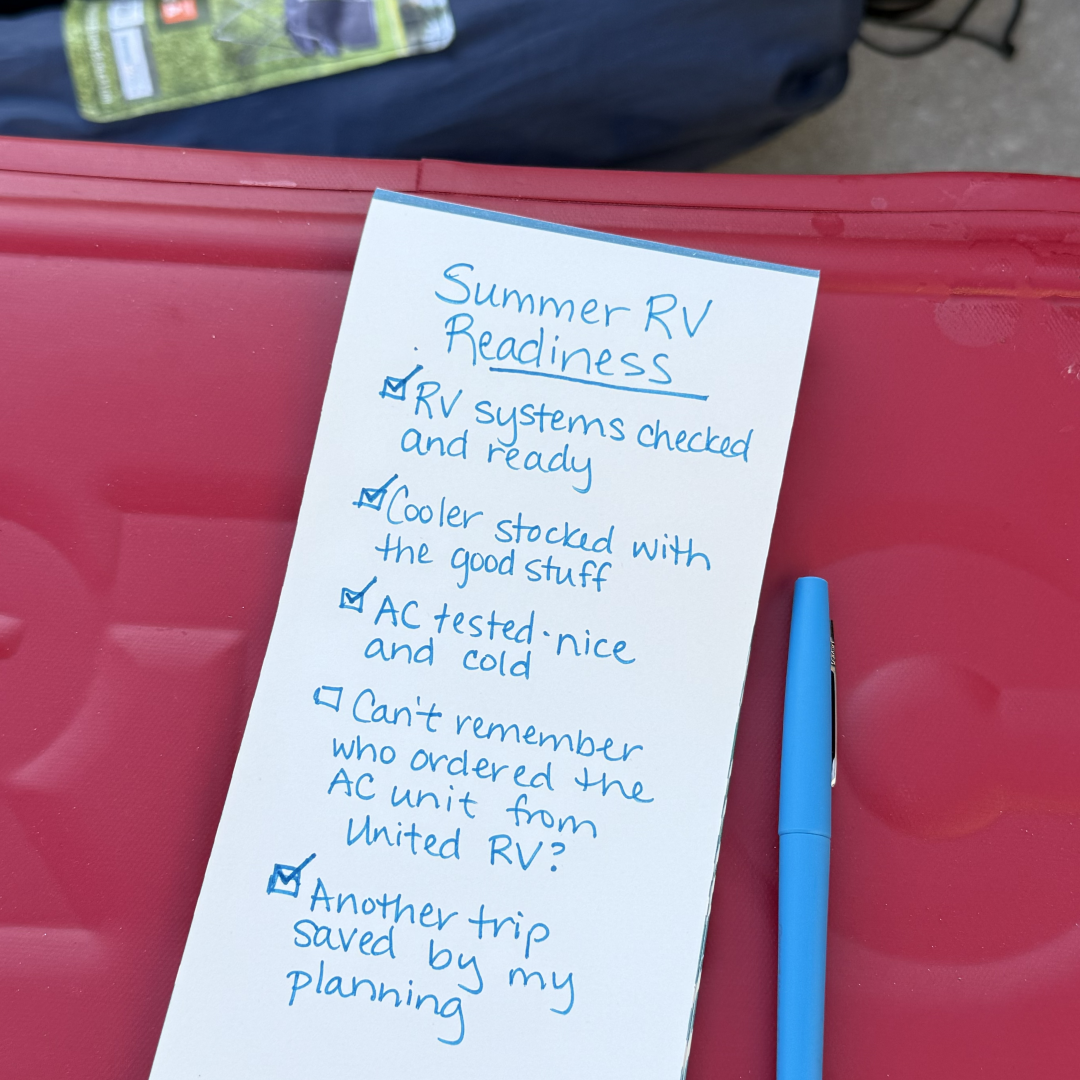 Summer RV
Readiness
RV systems checked
and ready
Cooler stocked with
the good stuff
AC tested · nice
and cold
Can't remember
who ordered the
AC unit from
United RV?
Another trip
saved by my
planning